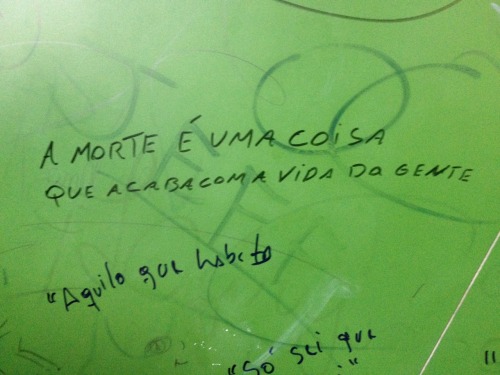 A MORTE É UMA COISA
QUE ACABA COM A VIDA DA GENTE
"Aquilo que
"Só sei que